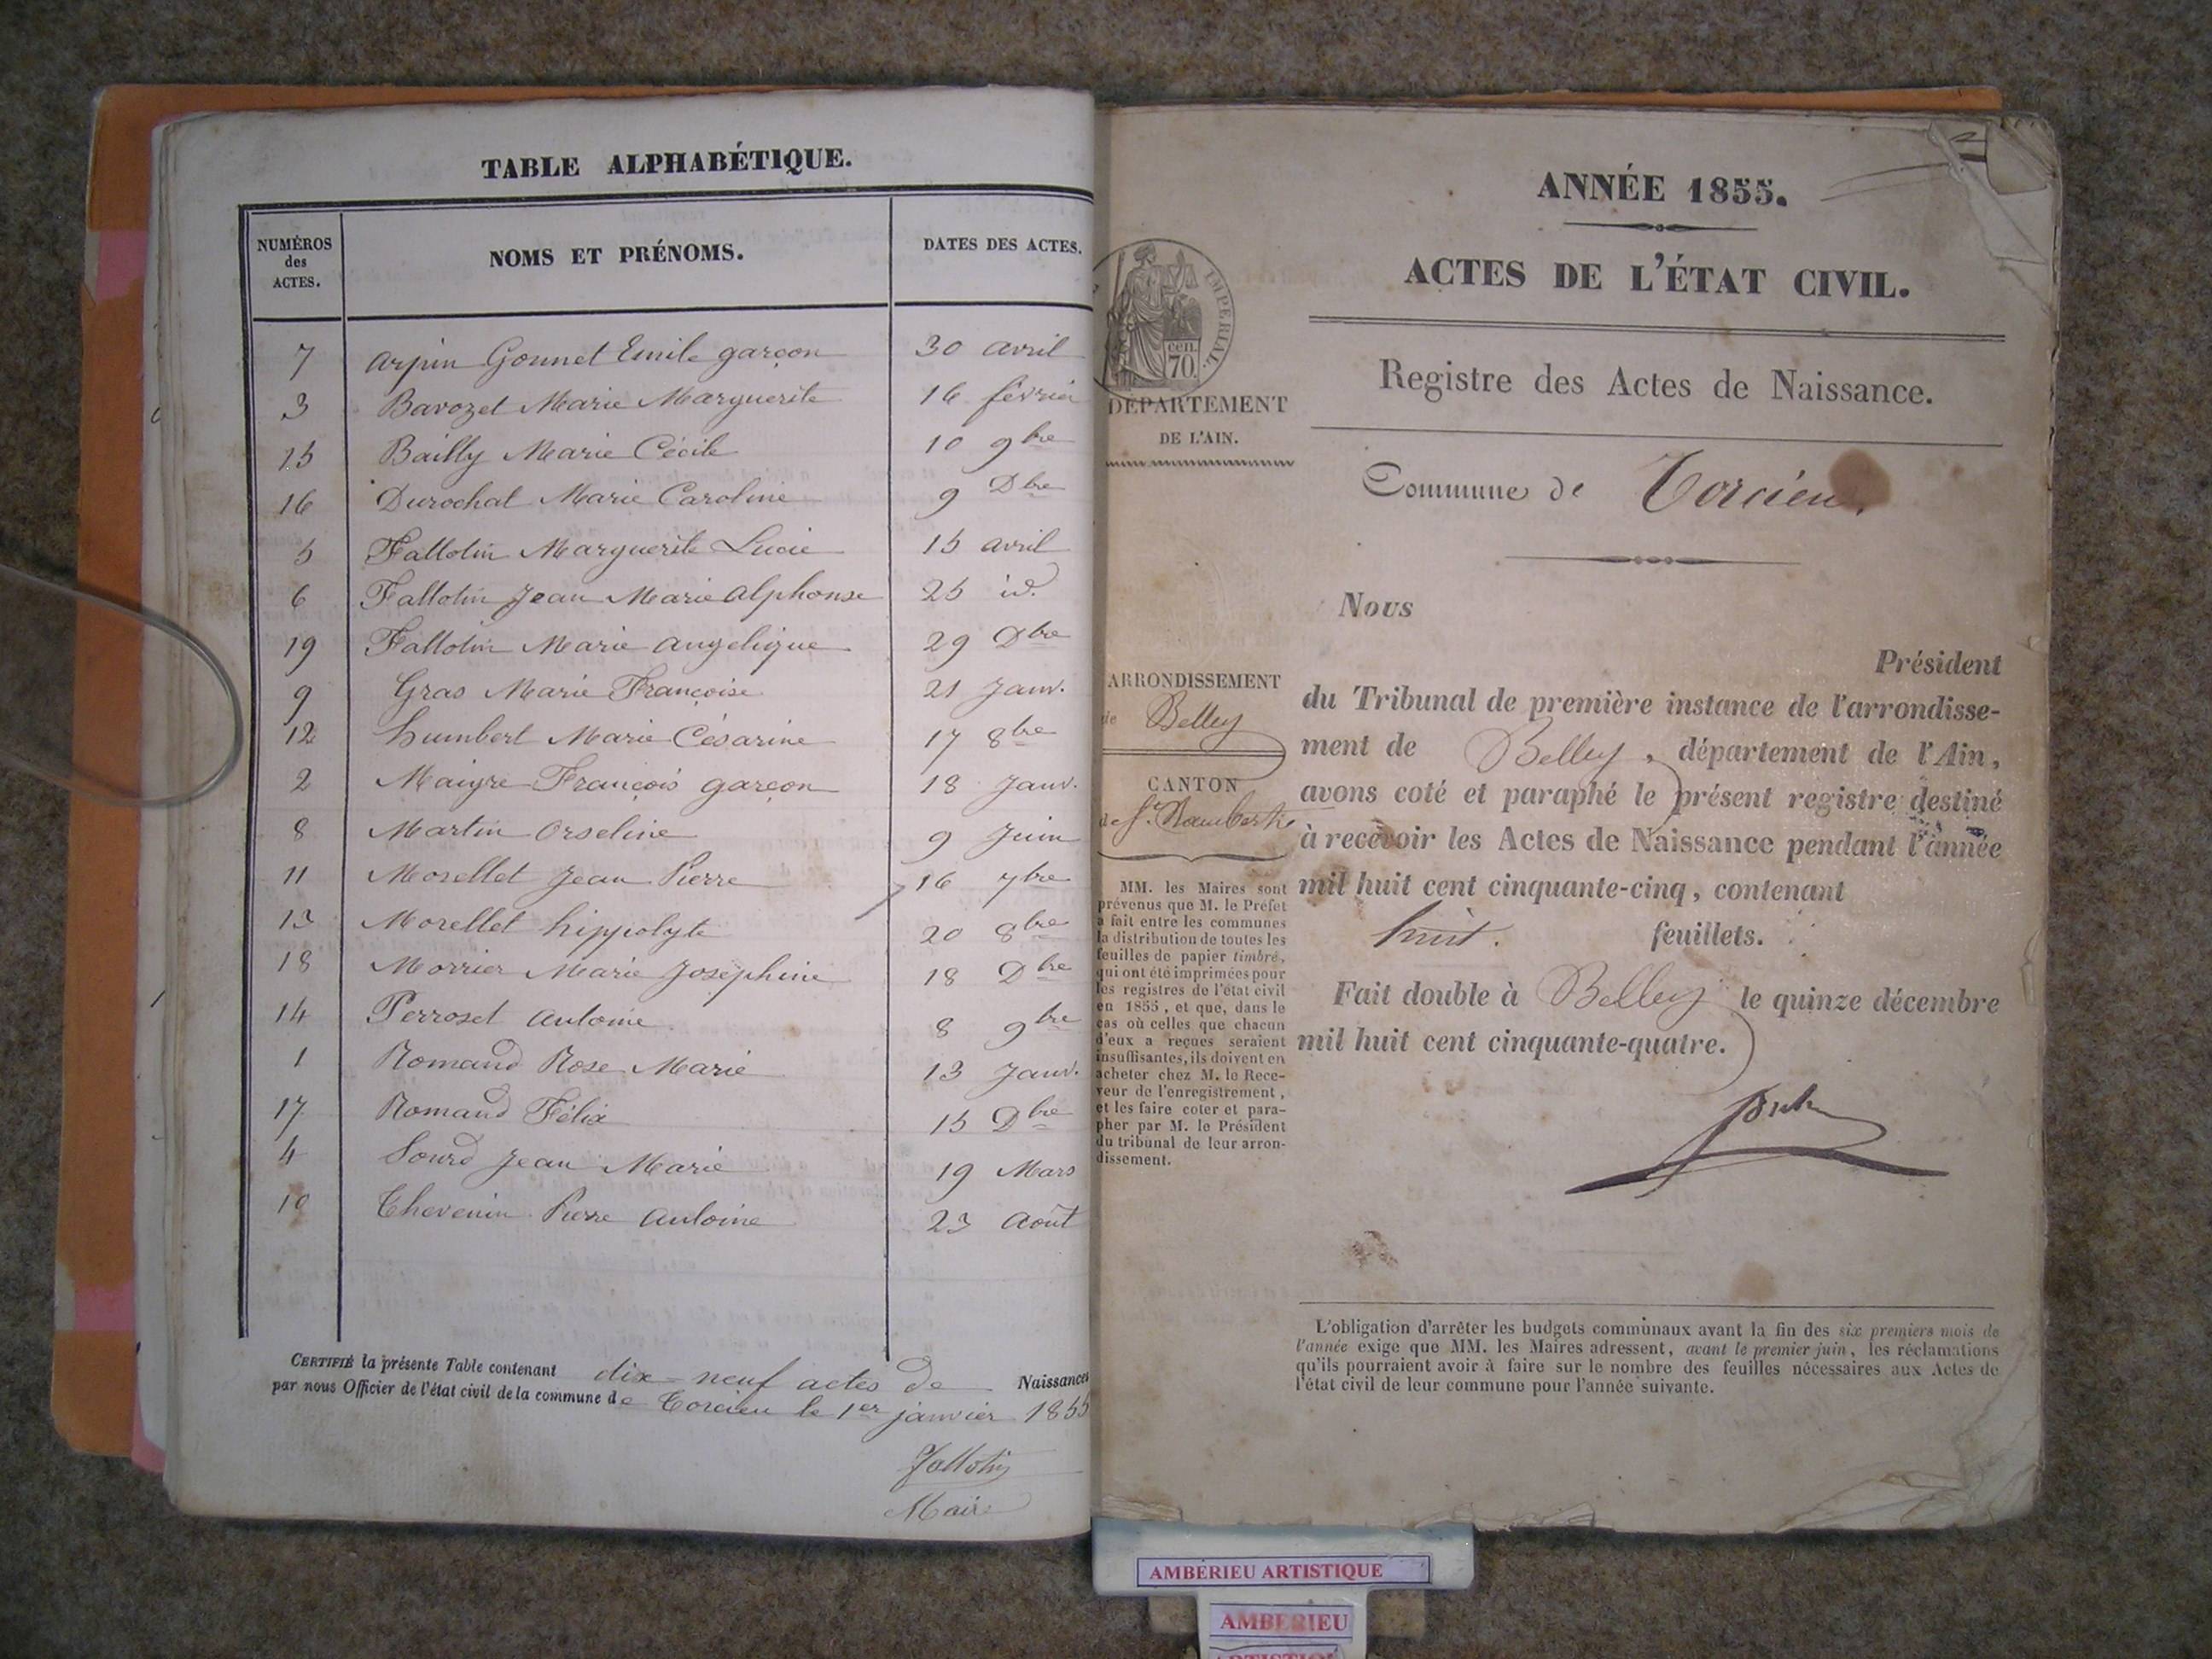 TABLE ALPHABÉTIQUE.
NUMÉROS des ACTES. NOMS ET PRÉNOMS. DATES DES ACTES.
7 Arpin Gonnet Emile garçon 30 avril
3 Bavozet Marie Marguerite 16 février
15 Bailly Marie Cécile 10 9bre
16 Durochat Marie Caroline 9 Dbre
5 Fallotin Marguerite Lucie 15 avril
6 Fallotin Jean Marie Alphonse 25 id.
19 Fallotin Marie Angelique 29 Dbre
9 Gras Marie Françoise 21 Janv.
12 humbert Marie Césarine 17 8bre
2 Maigre François garçon 18 Janv.
8 Martin Orseline 9 Juin
11 Morellet Jean Pierre 16 7bre
13 Morellet hippolyte 20 8bre
18 Morrier Marie Joséphine 18 Dbre
14 Perroset Antoine 8 9bre
1 Romand Rose Marie 13 Janv.
17 Romand Félix 15 Dbre
4 Sourd Jean Marie 19 Mars
10 Thevenin Pierre Antoine 23 Août
CERTIFIÉ la présente Table contenant dix-neuf actes de Naissances
par nous Officier de l'état civil de la commune de Torcieu le 1er janvier 1855
Fallotin
Maire
ANNÉE 1855.
ACTES DE L'ÉTAT CIVIL.
IMPERIAL.
cen.
70.
Registre des Actes de Naissance.
DÉPARTEMENT
DE L'AIN.
Commune de Torcieu.
Nous
Président
ARRONDISSEMENT
de Belley
CANTON
de St. Rambert
du Tribunal de première instance de l'arrondisse-
ment de Belley, département de l'Ain,
avons coté et paraphé le présent registre destiné
à recevoir les Actes de Naissance pendant l'année
mil huit cent cinquante-cinq, contenant
huit. feuillets.
Fait double à Belley le quinze décembre
mil huit cent cinquante-quatre.
MM. les Maires sont
prévenus que M. le Préfet
a fait entre les communes
la distribution de toutes les
feuilles de papier timbré,
qui ont été imprimées pour
les registres de l'état civil
en 1855, et que, dans le
cas où celles que chacun
d'eux a reçues seraient
insuffisantes, ils doivent en
acheter chez M. le Rece-
veur de l'enregistrement,
et les faire coter et para-
pher par M. le Président
du tribunal de leur arron-
dissement.
L'obligation d'arrêter les budgets communaux avant la fin des six premiers mois de
l'année exige que MM. les Maires adressent, avant le premier juin, les réclamations
qu'ils pourraient avoir à faire sur le nombre des feuilles nécessaires aux Actes de
l'état civil de leur commune pour l'année suivante.
AMBERIEU ARTISTIQUE
AMBERIEU
ARTISTIQUE